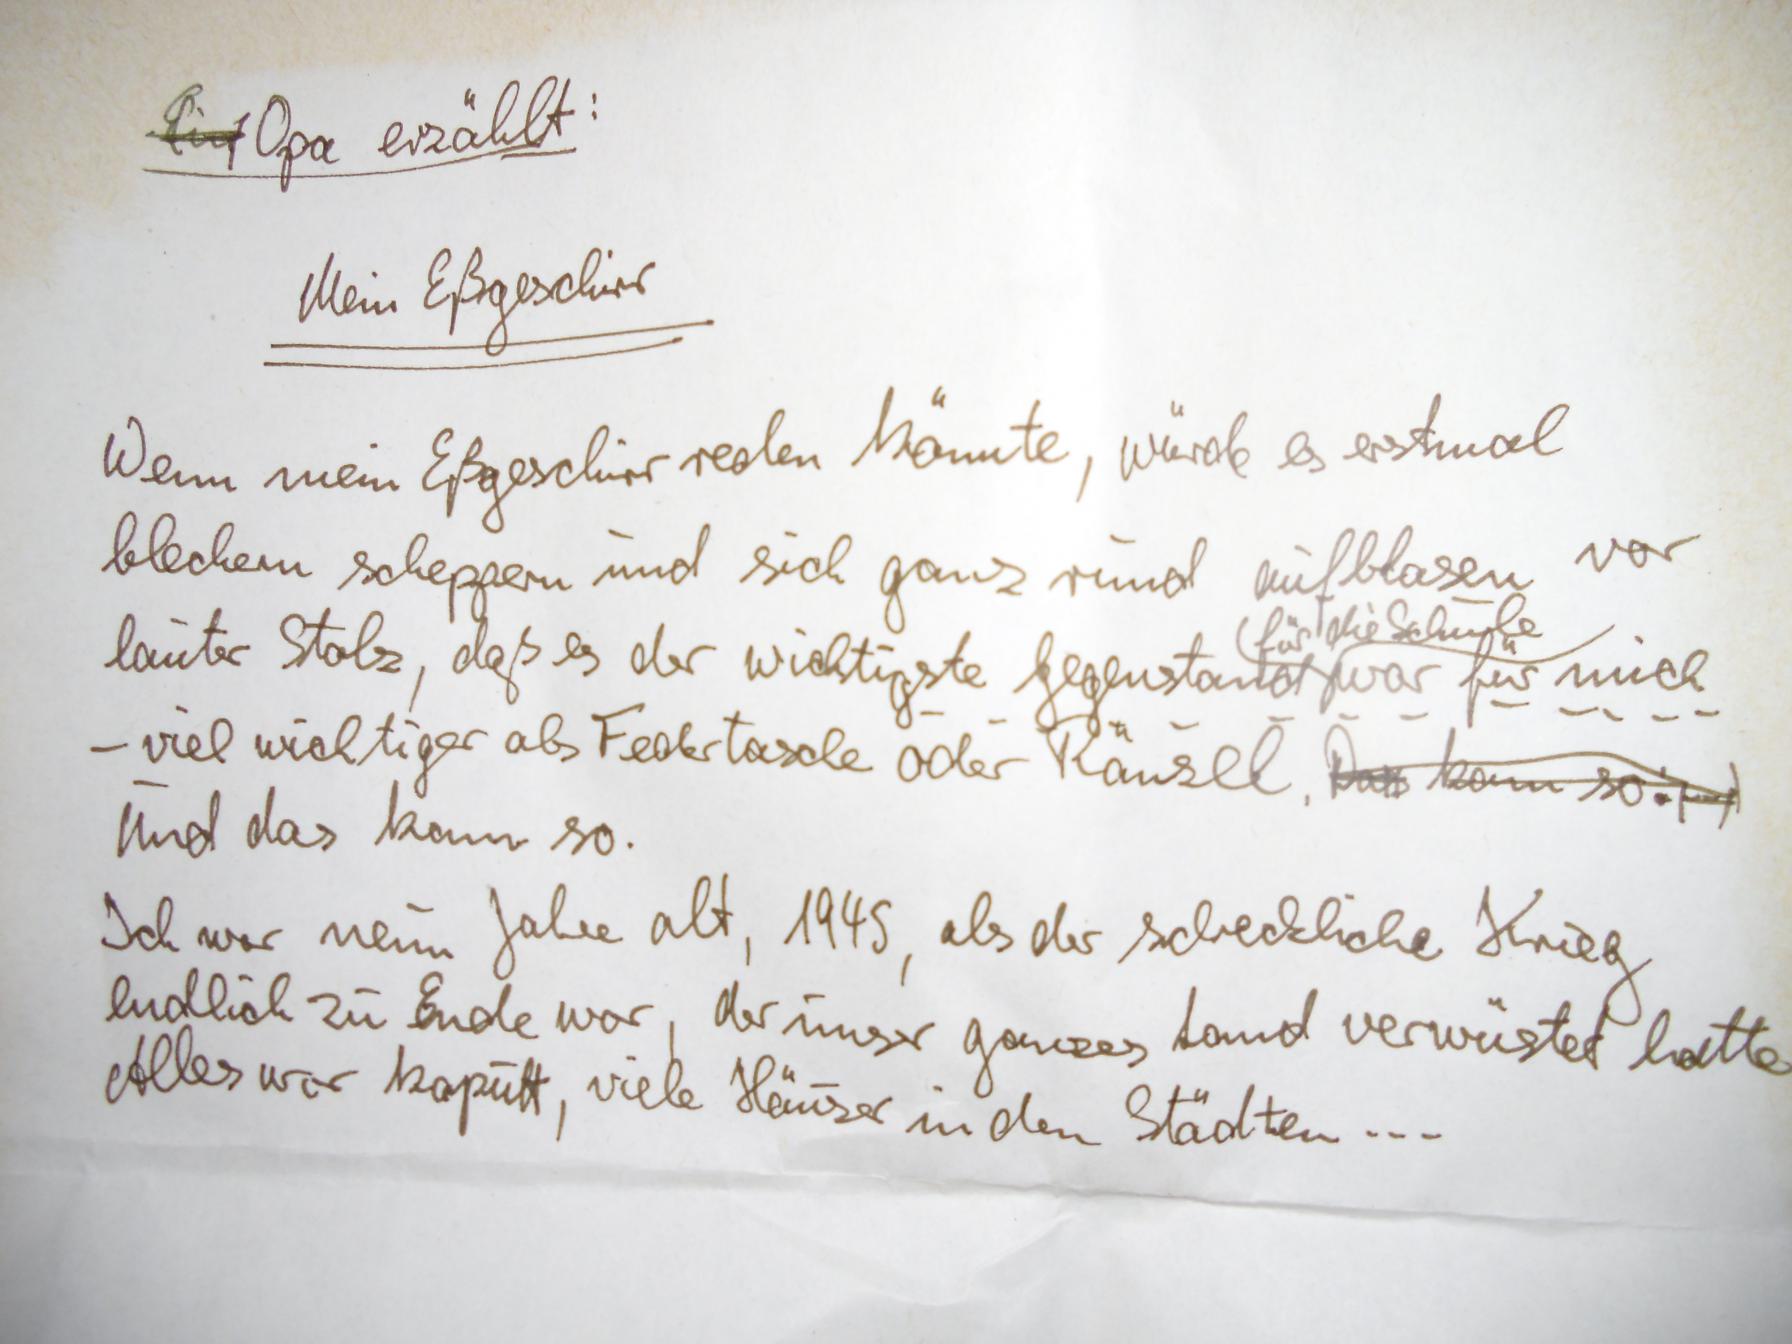 Ein Opa erzählt:
Mein Eßgeschirr
Wenn mein Eßgeschirr reden könnte, würde es erstmal
blechern scheppern und sich ganz rund aufblasen vor
für die Schule
lauter Stolz, daß es der wichtigste Gegenstand war für mich
– viel wichtiger als Federtasche oder Ränzel. Das kam so:
Und das kam so.
Ich war neun Jahre alt, 1945, als der schreckliche Krieg
endlich zu Ende war, der unser ganzes Land verwüstet hatte
Alles war kaputt, viele Häuser in den Städten ---